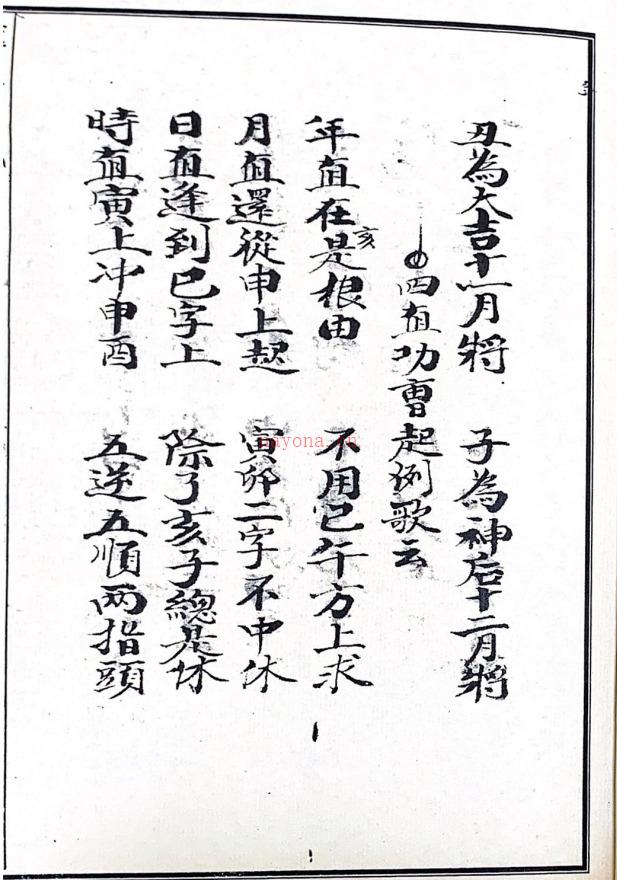 丑為大吉十一月將 子為神后十二月將
四直功曹起例歌云
年直在亥是根由 不用巳午方上求
月直還從申上起 寅卯二字不中休
日直逢到巳字上 除了亥子總是休
時直寅上冲申酉 五逆五順兩指頭